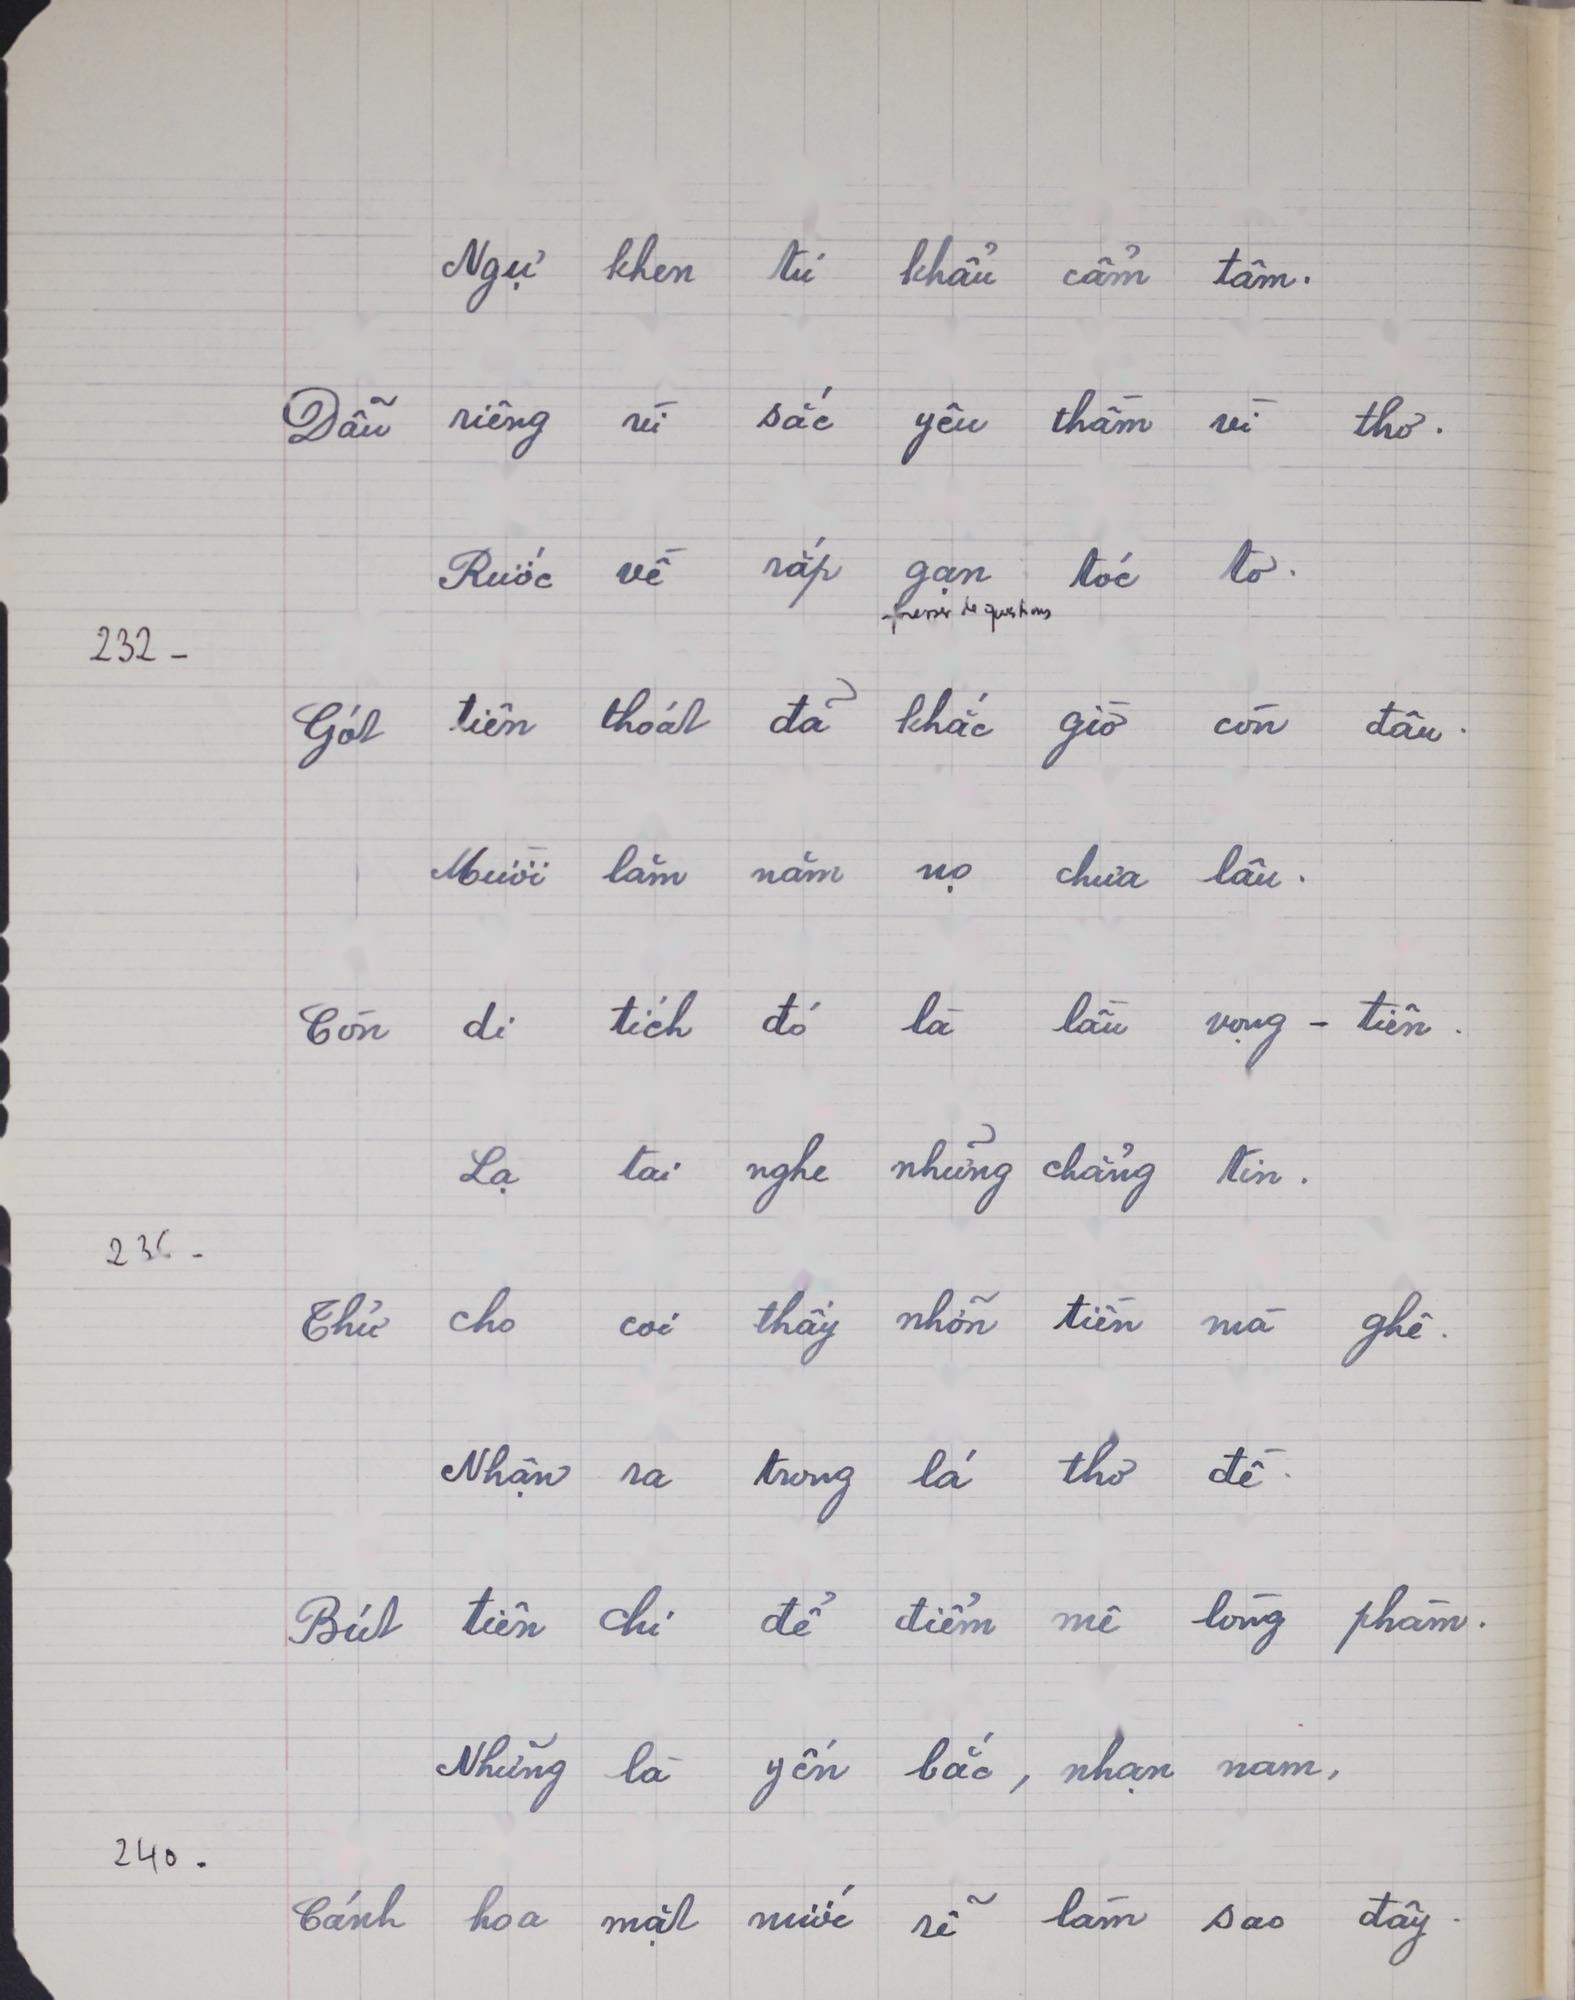 Ngự khen tú khẩu cẩm tâm.
Dẫu riêng vì sắc yêu thầm vì thơ.
Rước về rắp gạn tóc tơ.
presser de questions
232 -
Gót tiên thoát đã khắc giờ còn đâu.
Mười lăm năm nọ chưa lâu.
Còn di tích đó là lầu vọng - tiên.
Lạ tai nghe những chẳng tin.
236 -
Thử cho coi thấy nhỡn tiền mà ghê.
Nhận ra trong lá thơ đề.
Bút tiên chỉ để điểm mê lòng phàm.
Những là yến bắc, nhạn nam,
240.
Cánh hoa mặt nước rẽ làm sao đây.